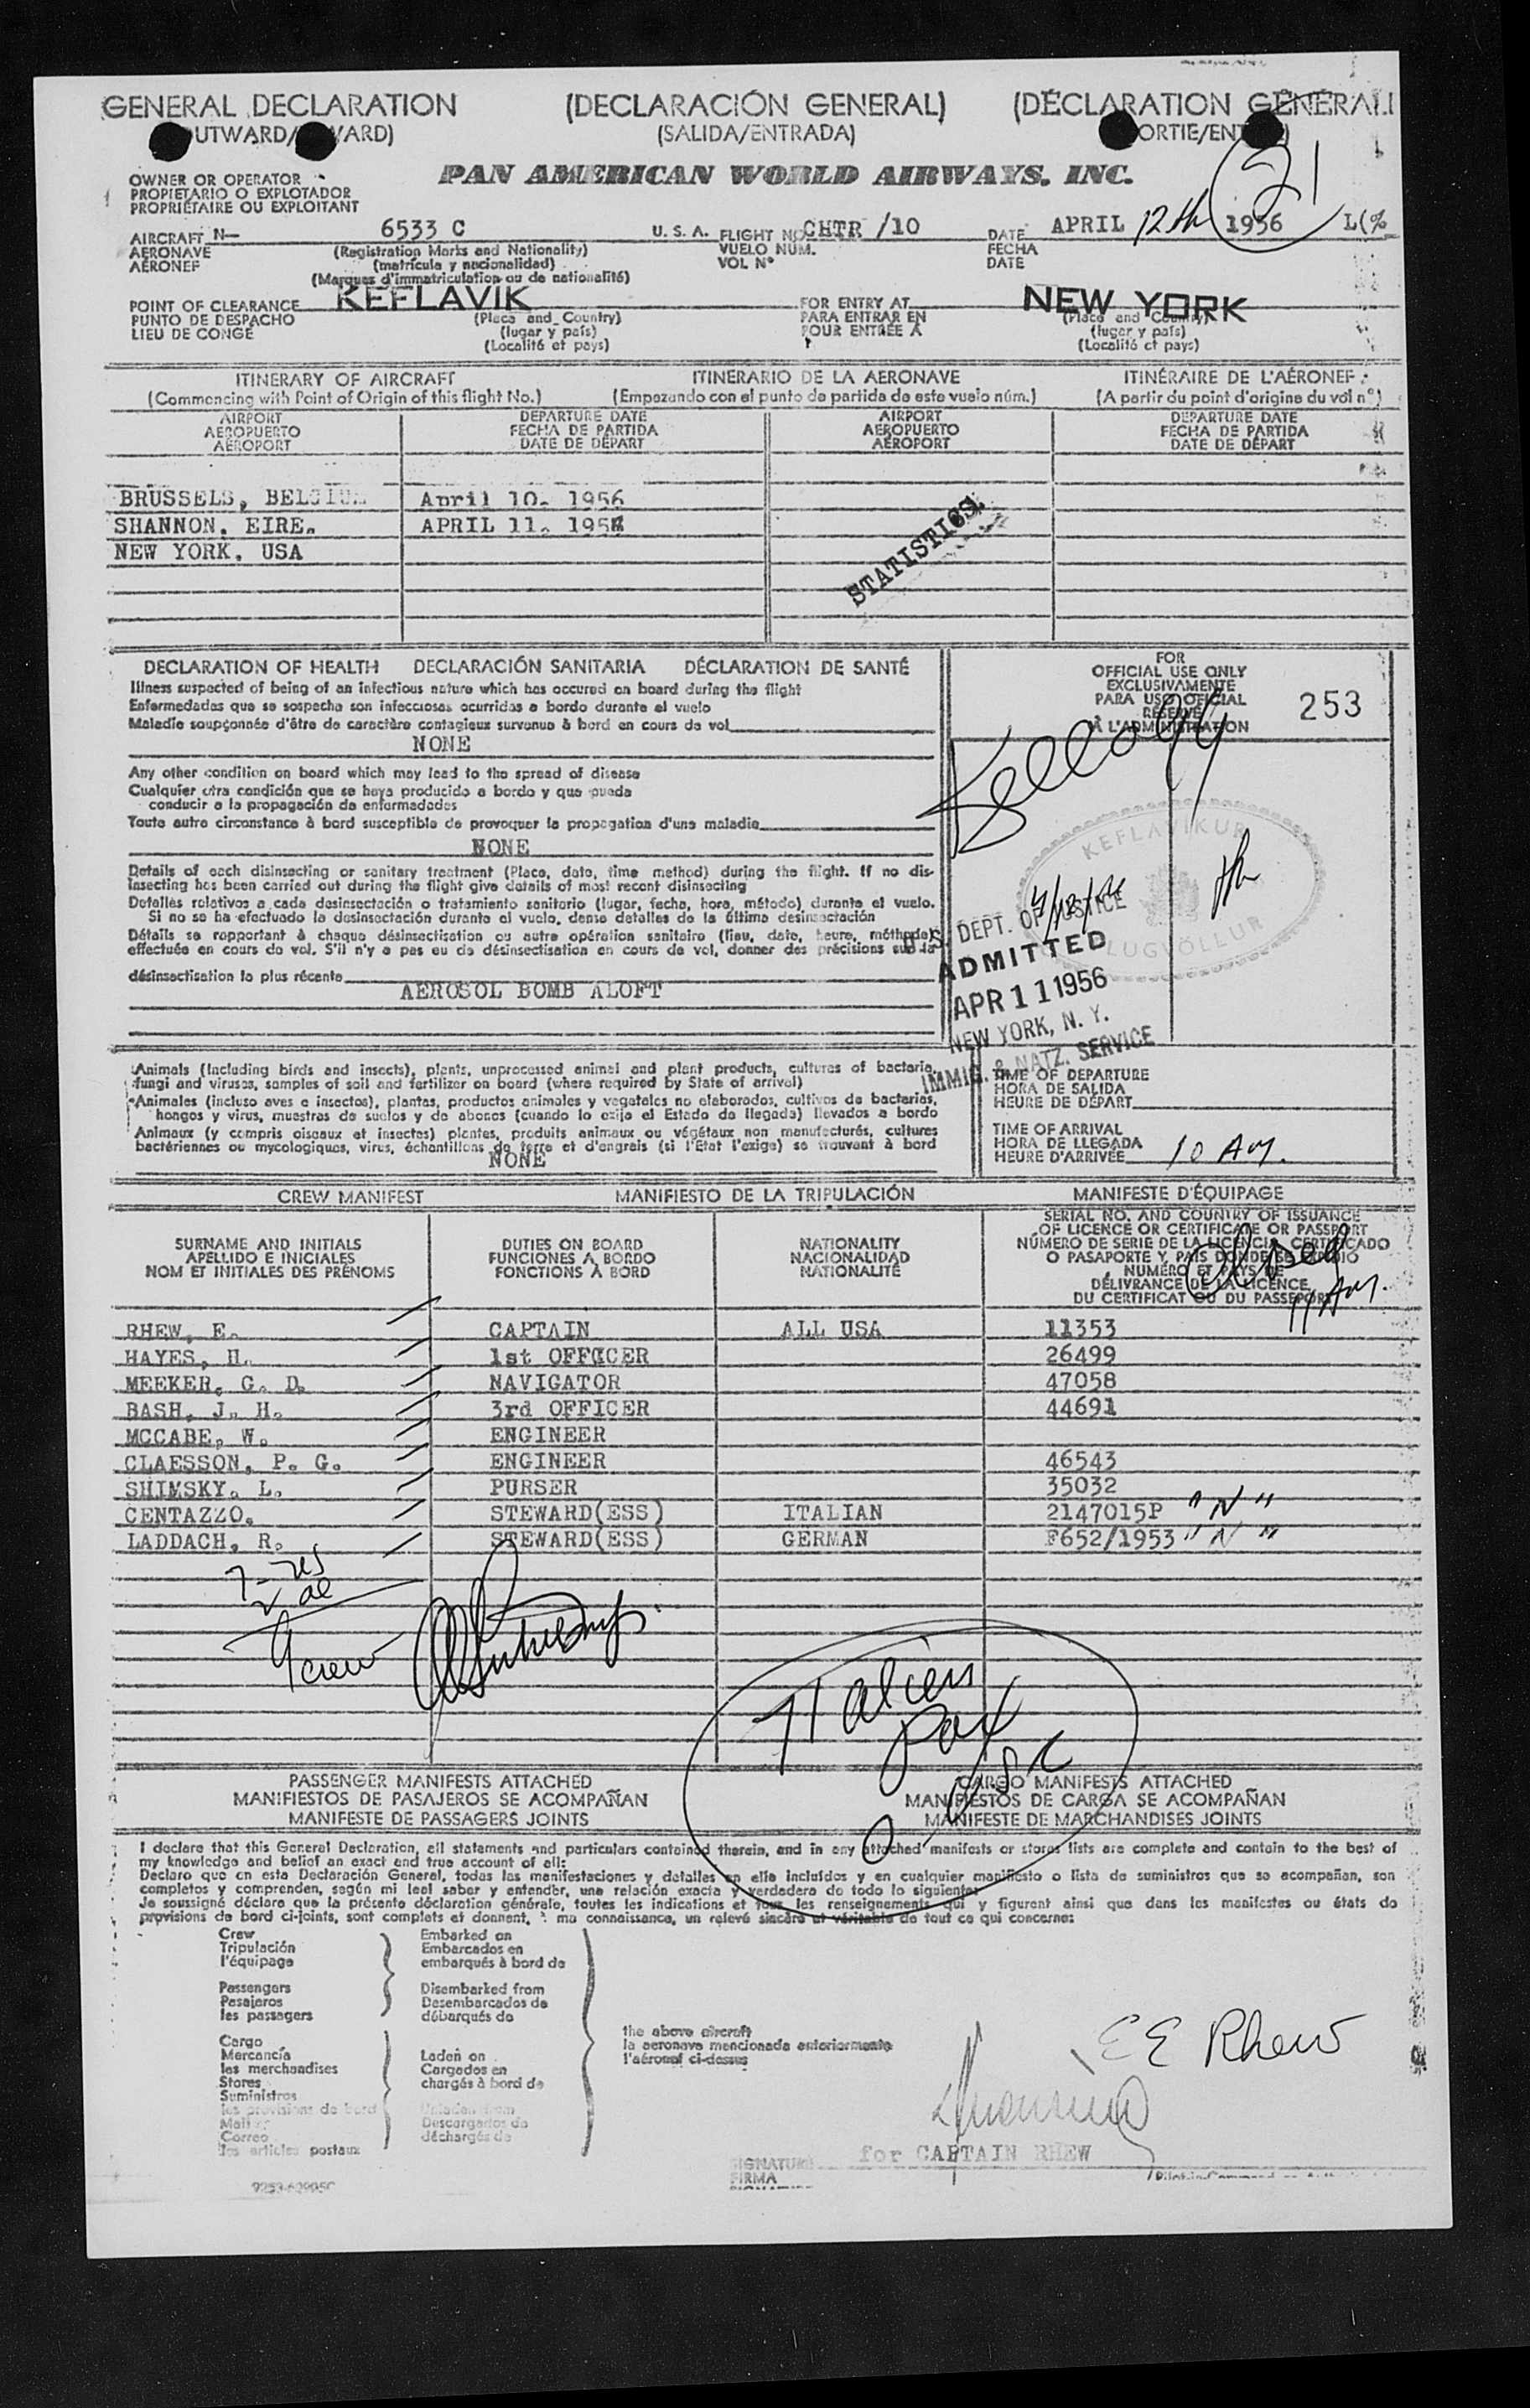 GENERAL DECLARATION (DECLARACIÓN GENERAL) (DÉCLARATION GÉNÉRALE
UTWARD/ WARD) (SALIDA/ENTRADA) ORTIE/EN
21
OWNER OR OPERATOR
PROPIETARIO O EXPLOTADOR
PROPRIÉTAIRE OU EXPLOITANT
PAN AMERICAN WORLD AIRWAYS, INC.
AIRCRAFT N— 6533 C U. S. A. FLIGHT NO CHTR /10 DATE APRIL 12th 1956
AERONAVE (Registration Marks and Nationality) VUELO NUM. FECHA
AÉRONEF (matrícula y nacionalidad) VOL Nº DATE
(Marques d'immatriculation ou de nationalité)
POINT OF CLEARANCE KEFLAVIK FOR ENTRY AT NEW YORK
PUNTO DE DESPACHO (Place and Country) PARA ENTRAR EN (Place and Country)
LIEU DE CONGÉ (lugar y país) POUR ENTRÉE A (lugar y país)
(Localité et pays) (Localité et pays)
ITINERARY OF AIRCRAFT ITINERARIO DE LA AERONAVE ITINÉRAIRE DE L'AÉRONEF
(Commencing with Point of Origin of this flight No.) (Empezando con el punto de partida de este vuelo núm.) (A partir du point d'origine du vol nº)
AIRPORT DEPARTURE DATE AIRPORT DEPARTURE DATE
AEROPUERTO FECHA DE PARTIDA AEROPUERTO FECHA DE PARTIDA
AÉROPORT DATE DE DÉPART AÉROPORT DATE DE DÉPART
BRUSSELS, BELGIUM April 10- 1956
SHANNON, EIRE. APRIL 11, 195
NEW YORK, USA
STATISTICS.
DECLARATION OF HEALTH DECLARACIÓN SANITARIA DÉCLARATION DE SANTÉ
Illness suspected of being of an infectious nature which has occured on board during the flight
Enfermedades que se sospecha son infecciosas ocurridas a bordo durante el vuelo
Maladie soupçonnée d'être de caractère contagieux survenue à bord en cours de vol
NONE
Any other condition on board which may lead to the spread of disease
Cualquier otra condición que se haya producido a bordo y que pueda
conducir a la propagación de enfermedades
Toute autre circonstance à bord susceptible de provoquer la propagation d'une maladie
NONE
Details of each disinsecting or sanitary treatment (Place, date, time method) during the flight. If no dis-
insecting has been carried out during the flight give details of most recent disinsecting
Detalles relativos a cada desinsectación o tratamiento sanitario (lugar, fecha, hora, método) durante el vuelo.
Si no se ha efectuado la desinsectación durante el vuelo, dense detalles de la última desinsectación
Détails se rapportant à chaque désinsectisation ou autre opération sanitaire (lieu, date, heure, méthode)
effectuée en cours de vol. S'il n'y a pas eu de désinsectisation en cours de vol, donner des précisions sur la
désinsectisation la plus récente
AEROSOL BOMB ALOFT
FOR
OFFICIAL USE ONLY
EXCLUSIVAMENTE
PARA USO OFICIAL
RÉSERVÉ
À L'ADMINISTRATION
253
Kellogg
KEFLAVIKUR
FLUGVÖLLUR
U. S. DEPT. OF JUSTICE
ADMITTED
APR 11 1956
NEW YORK, N. Y.
IMMIG. & NATZ. SERVICE
Animals (Including birds and insects), plants, unprocessed animal and plant products, cultures of bacteria,
fungi and viruses, samples of soil and fertilizer on board (where required by State of arrival)
Animales (incluso aves e insectos), plantas, productos animales y vegetales no elaborados, cultivos de bacterias,
hongos y virus, muestras de suelos y de abonos (cuando lo exija el Estado de llegada) llevados a bordo
Animaux (y compris oiseaux et insectes) plantes, produits animaux ou végétaux non manufacturés, cultures
bactériennes ou mycologiques, virus, échantillons de terre et d'engrais (si l'État l'exige) se trouvant à bord
NONE
TIME OF DEPARTURE
HORA DE SALIDA
HEURE DE DÉPART
TIME OF ARRIVAL
HORA DE LLEGADA
HEURE D'ARRIVÉE 10 AM.
CREW MANIFEST MANIFIESTO DE LA TRIPULACIÓN MANIFESTE D'ÉQUIPAGE
SURNAME AND INITIALS
APELLIDO E INICIALES
NOM ET INITIALES DES PRÉNOMS
DUTIES ON BOARD
FUNCIONES A BORDO
FONCTIONS À BORD
NATIONALITY
NACIONALIDAD
NATIONALITÉ
SERIAL NO. AND COUNTRY OF ISSUANCE
OF LICENCE OR CERTIFICATE OR PASSPORT
NÚMERO DE SERIE DE LA LICENCIA, CERTIFICADO
O PASAPORTE Y PAIS DONDE SE EXPIDIÓ
NUMÉRO ET PAYS DE
DÉLIVRANCE DE LA LICENCE,
DU CERTIFICAT OU DU PASSEPORT
11 AM.
RHEW, E. CAPTAIN ALL USA 11353
HAYES, H. 1st OFFICER 26499
MEEKER, G. D. NAVIGATOR 47058
BASH, J. H. 3rd OFFICER 44691
MCCABE, W. ENGINEER
CLAESSON, P. G. ENGINEER 46543
SHIMSKY. L. PURSER 35032
CENTAZZO. STEWARD(ESS) ITALIAN 2147015P "N"
LADDACH, R. STEWARD(ESS) GERMAN F652/1953 "N"
7- US
2 al
9 crew
71 alien
pax
0 - USC
PASSENGER MANIFESTS ATTACHED CARGO MANIFESTS ATTACHED
MANIFIESTOS DE PASAJEROS SE ACOMPAÑAN MANIFIESTOS DE CARGA SE ACOMPAÑAN
MANIFESTE DE PASSAGERS JOINTS MANIFESTE DE MARCHANDISES JOINTS
I declare that this General Declaration, all statements and particulars contained therein, and in any attached manifests or stores lists are complete and contain to the best of
my knowledge and belief an exact and true account of all:
Declaro que en esta Declaración General, todas las manifestaciones y detalles en ella incluídos y en cualquier manifiesto o lista de suministros que se acompañan, son
completos y comprenden, según mi leal saber y entender, una relación exacta y verdadera de todo lo siguiente:
Je soussigné déclare que la présente déclaration générale, toutes les indications et tous les renseignements qui y figurent ainsi que dans les manifestes ou états de
provisions de bord ci-joints, sont complets et donnent, à ma connaissance, un relevé sincère et véritable de tout ce qui concerne:
Crew
Tripulación
l'équipage
Passengers
Pasajeros
les passagers
Cargo
Mercancía
les merchandises
Stores
Suministros
les provisions de bord
Mail
Correo
les articles postaux
Embarked on
Embarcados en
embarqués à bord de
Disembarked from
Desembarcados de
débarqués de
Laden on
Cargados en
chargés à bord de
Unladen from
Descargados de
déchargés de
the above aircraft
la aeronave mencionada anteriormente
l'aéronef ci-dessus
EE Rhew
for CAPTAIN RHEW
SIGNATURE
FIRMA